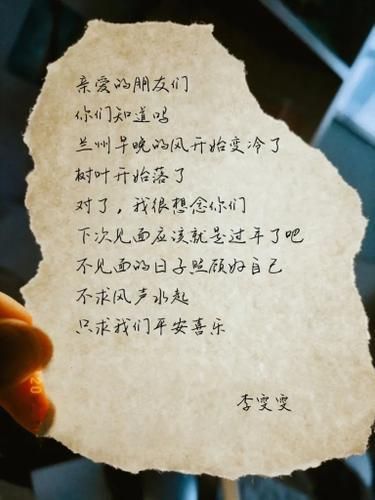 亲爱的朋友们
你们知道吗
兰州早晚的风开始变冷了
树叶开始落了
对了，我很想念你们
下次见面应该就是过年了吧
不见面的日子照顾好自己
不求风声水起
只求我们平安喜乐
李雯雯